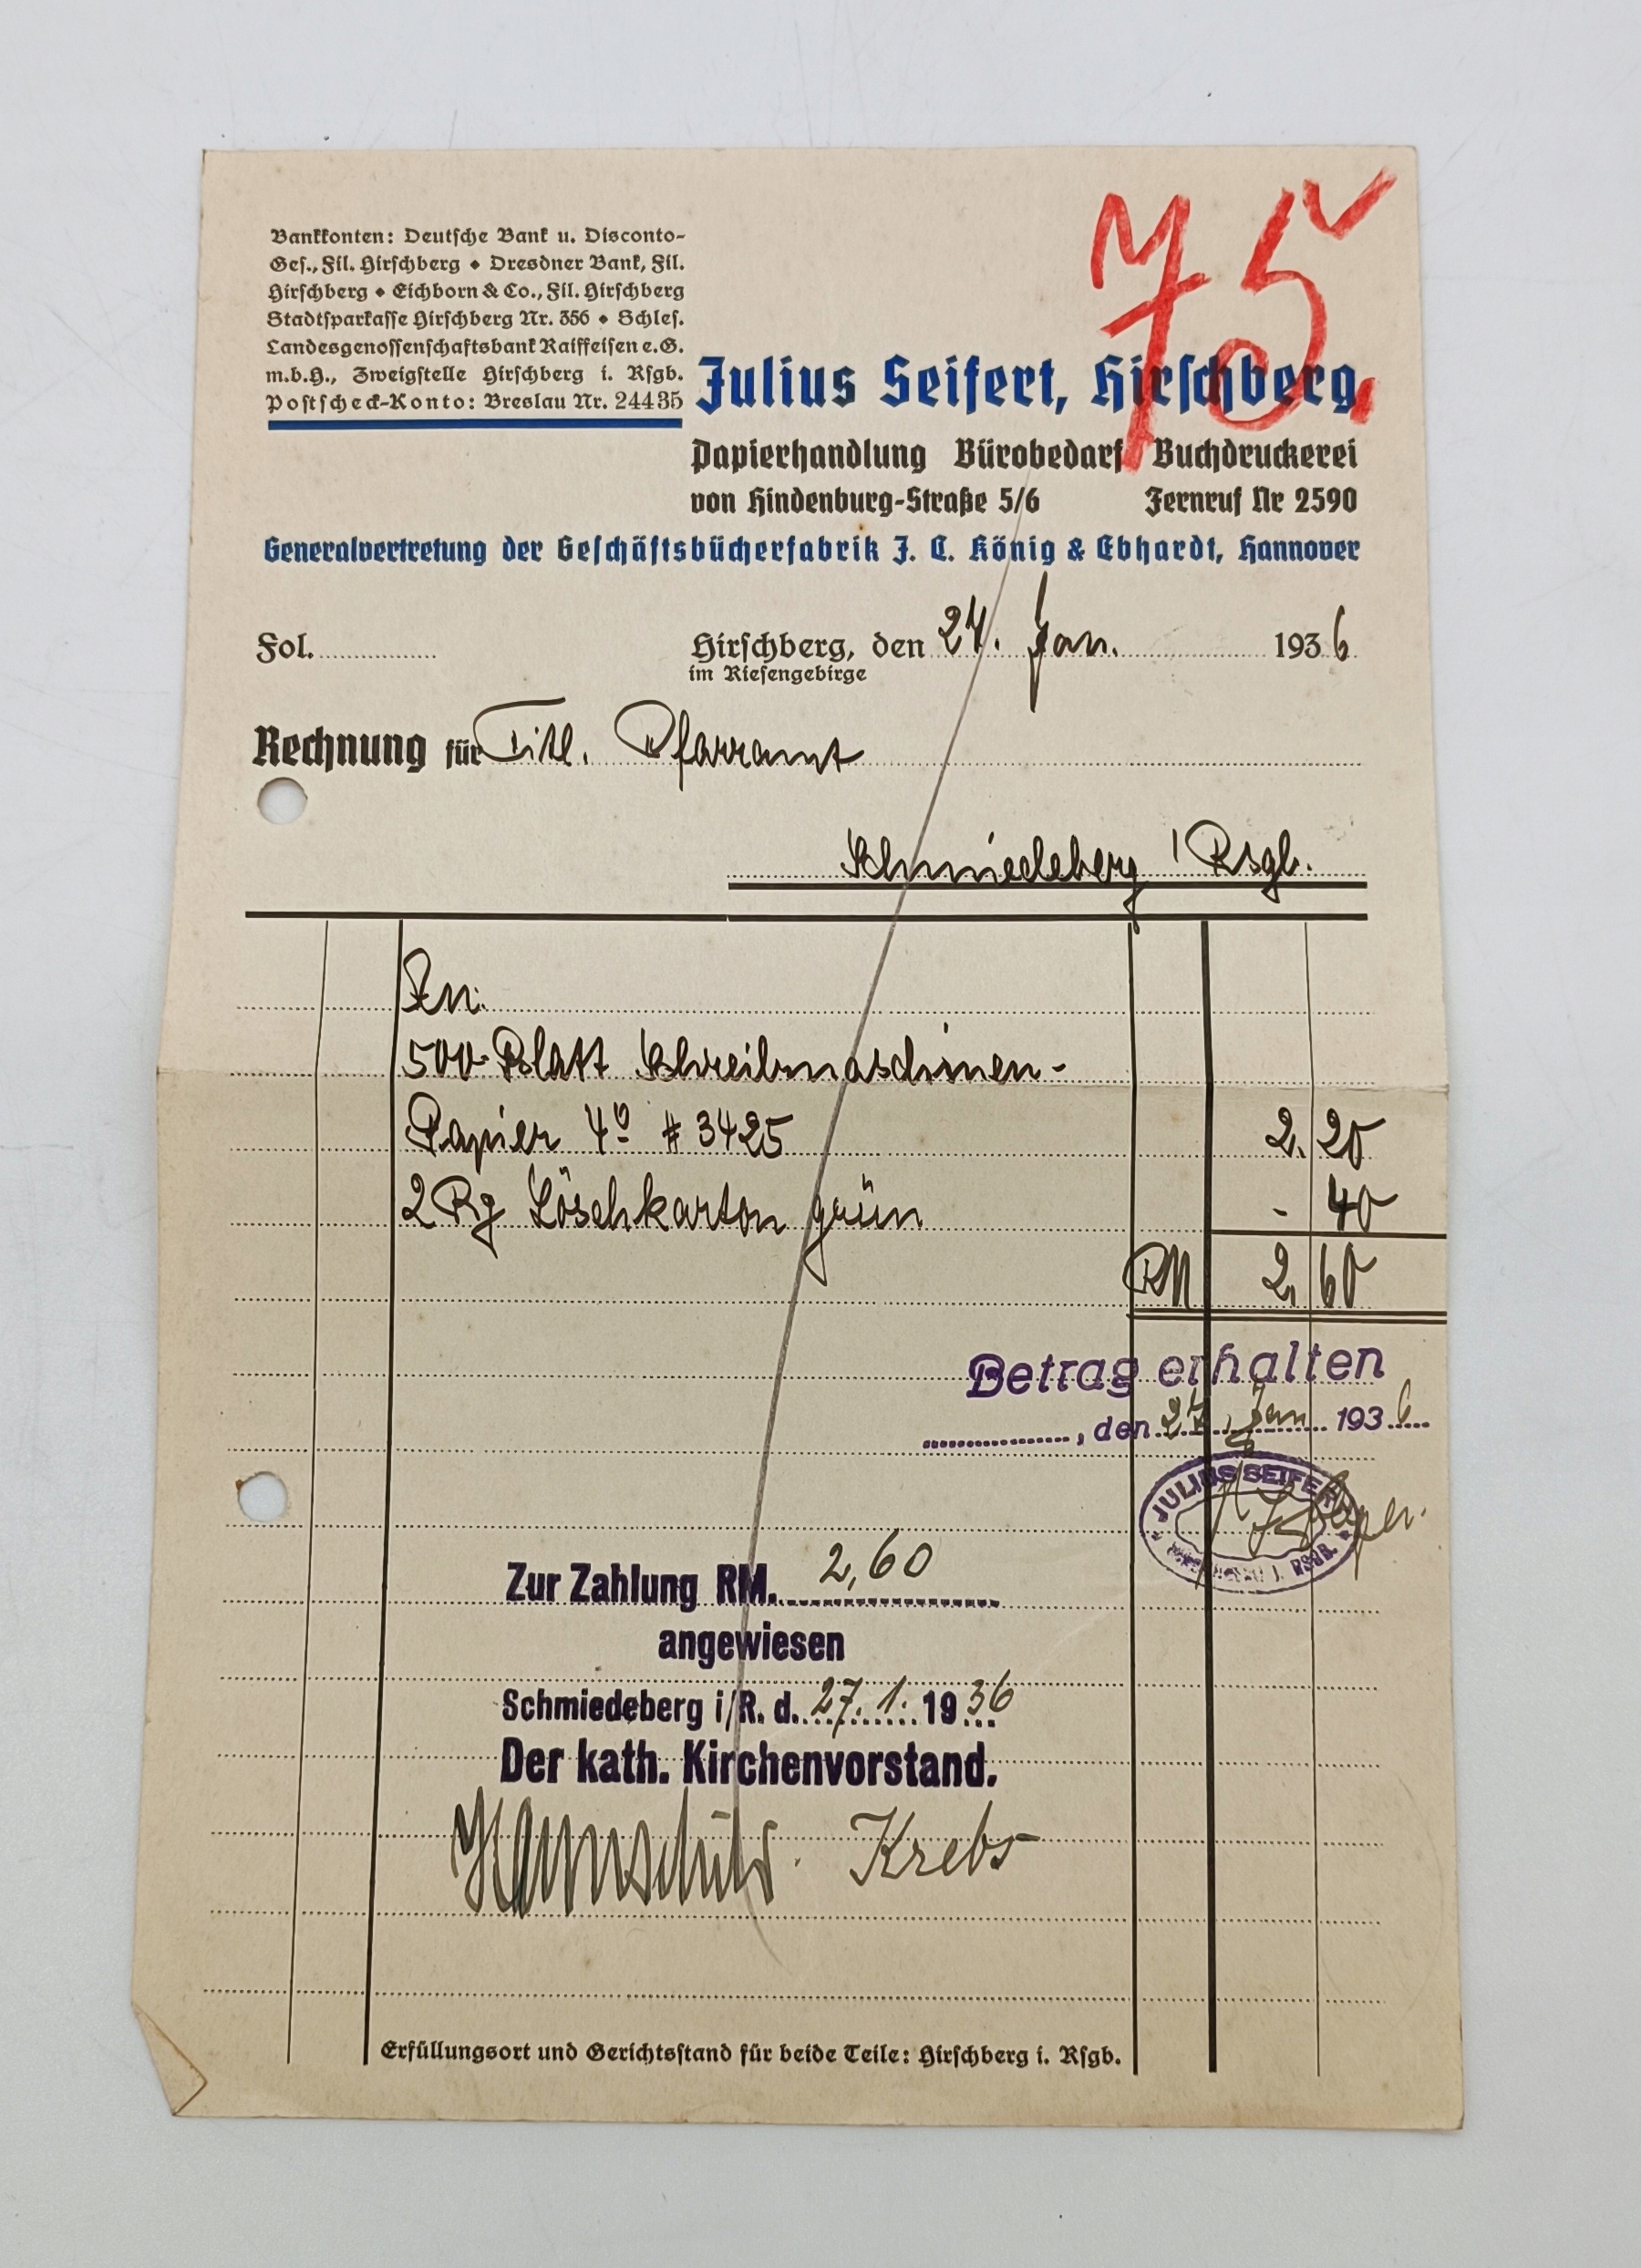 75.
Bankkonten: Deutsche Bank u. Disconto-
Ges., Fil. Hirschberg ◆ Dresdner Bank, Fil.
Hirschberg ◆ Eichborn & Co., Fil. Hirschberg
Stadtsparkasse Hirschberg Nr. 356 ◆ Schles.
Landesgenossenschaftsbank Raiffeisen e.G.
m.b.H., Zweigstelle Hirschberg i. Rsgb.
Postscheck-Konto: Breslau Nr. 24435
Julius Seifert, Hirschberg
Papierhandlung Bürobedarf Buchdruckerei
von Hindenburg-Straße 5/6 Fernruf Nr 2590
Generalvertretung der Geschäftsbücherfabrik J. C. König & Ebhardt, Hannover
Fol. Hirschberg, den 27. Jan. 1936
im Riesengebirge
Rechnung für Titl. Pfarramt
Schmiedeberg /Rsgb.
An:
500 Blatt Schreibmaschinen-
Papier 4º # 3425 2. 20
2 Bg Löschkarton grün - 40
RM 2, 60
Betrag erhalten
, den 27. Jan 1936
JULIUS SEIFERT
I. RSGB.
Zur Zahlung RM. 2,60
angewiesen
Schmiedeberg i/R. d. 27. 1. 1936
Der kath. Kirchenvorstand.
Krebs
Erfüllungsort und Gerichtsstand für beide Teile: Hirschberg i. Rsgb.